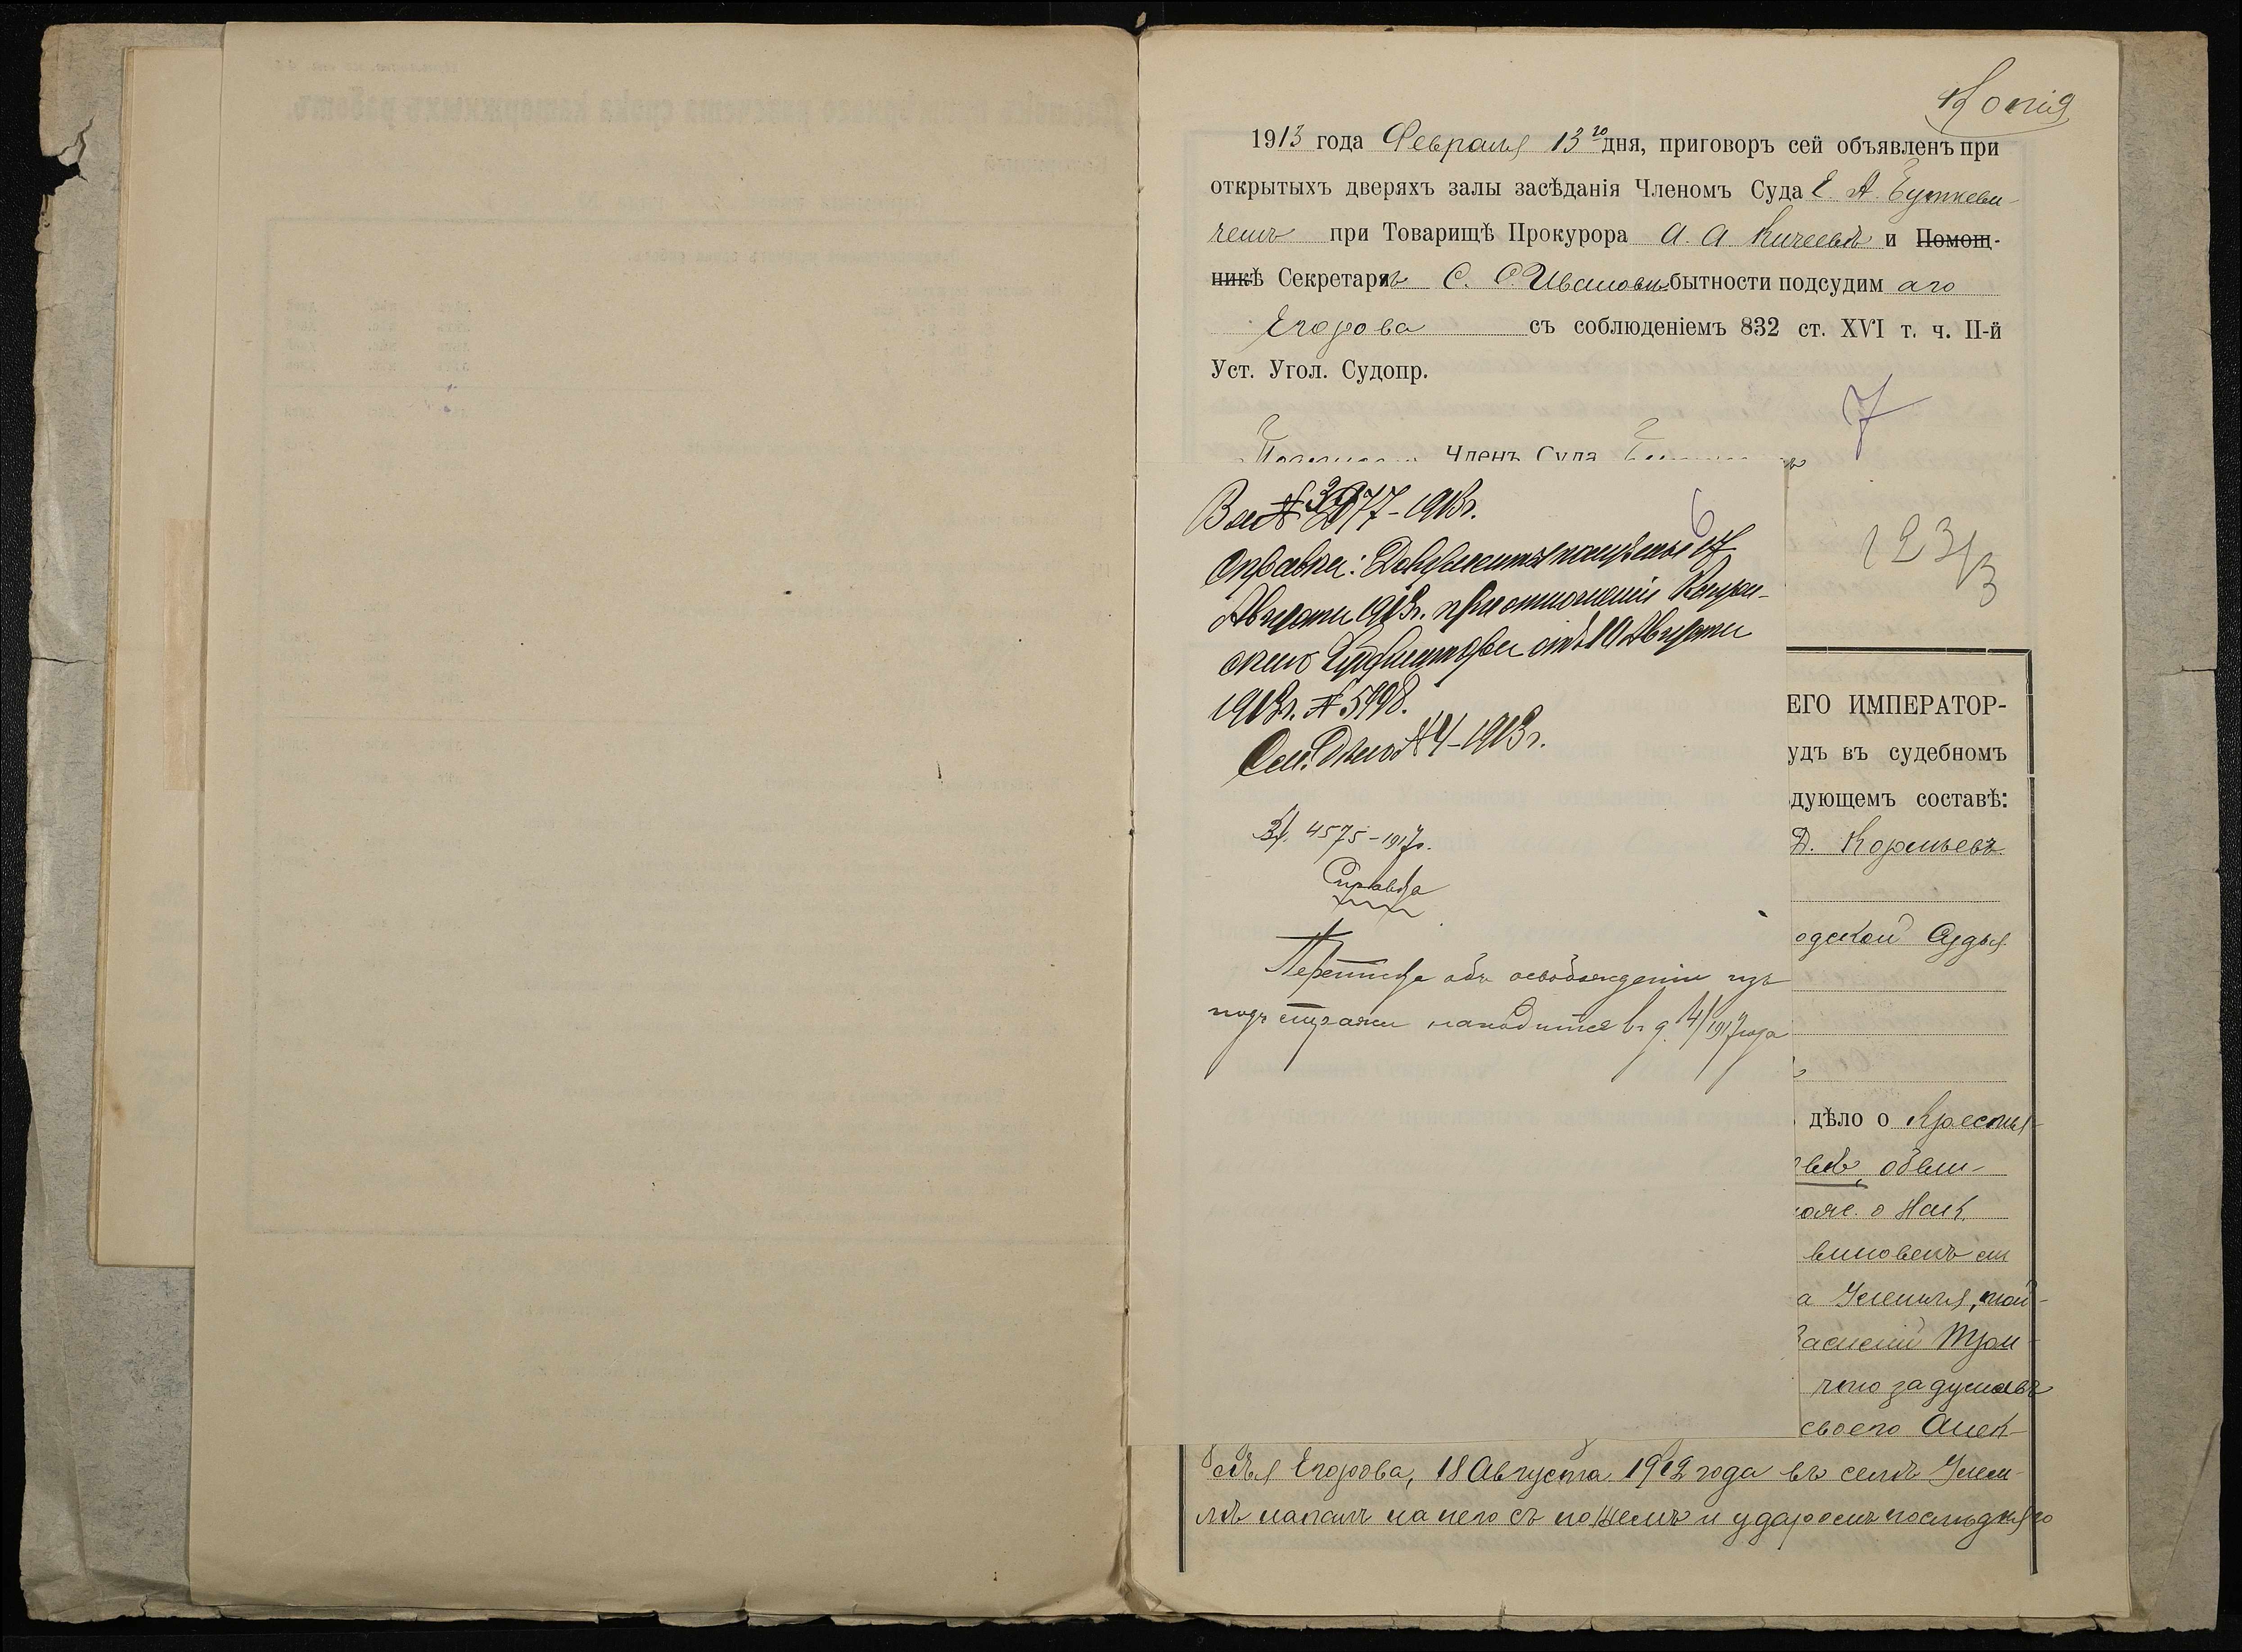 Копія
1913 года Февраля 13го дня, приговоръ сей объявленъ при
открытыхъ дверяхъ залы засѣданія Членомъ Суда Е. А. Буткеви-
чемъ при Товарищѣ Прокурора А. А. Кичеевѣ и Помощ-
никѣ Секретарѣ С. С. Ивановѣ бытности подсудим аго
Егорова съ соблюденіемъ 832 ст. XVI т. ч. II-й
Уст. Угол. Судопр.
7
Членъ Суда
Вх № 3977-1913г.
6
Справка: Документы 17
Августа 1913г. при отношеніи
от 10 Августа
1913г. № 5998.
См. Дѣло № 4-1913г.
123/3
Вх. 4575-1917г.
Справка
Переписка объ освобожденіи изъ
подъ стражи находится въ д. 4/1917 года
ЕГО ИМПЕРАТОР-
удъ въ судебномъ
дующемъ составѣ:
Д. Корольевъ
одской Судья
дѣло о Крестья-
вѣ, обви-
о Нак.
виновенъ ли
а
Василій
что задумавъ
своего Алек-
сѣя Егорова, 18 Августа 1912 года въ селѣ
лѣ напалъ на него съ ножемъ и ударомъ послѣдняго